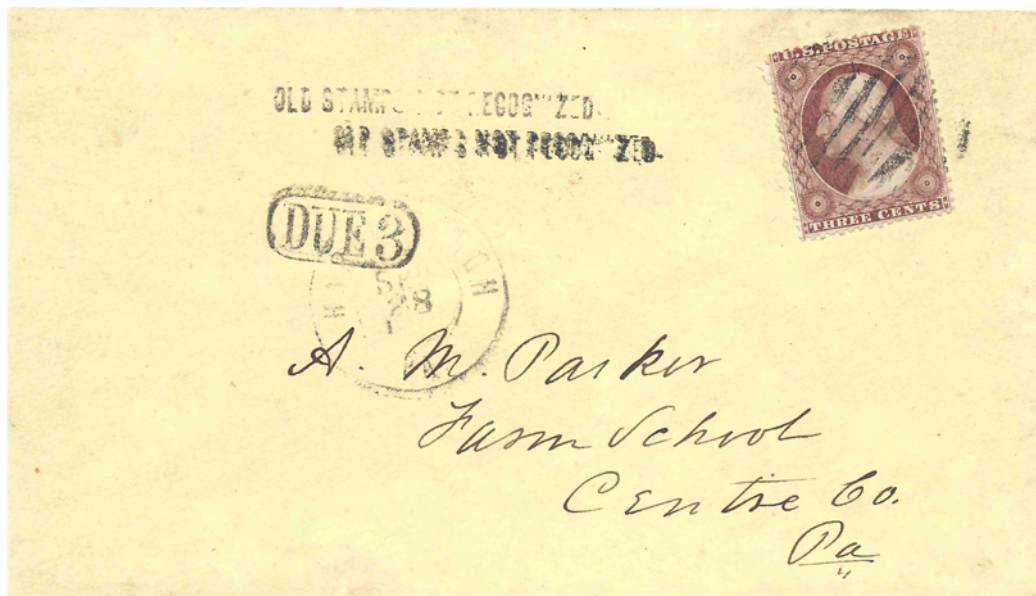 U.S. POSTAGE
OLD STAMPS NOT RECOGNIZED.
OLD STAMPS NOT RECOGNIZED.
THREE CENTS
DUE 3
28
A. M. Parker
Farm School
Centre Co.
Pa